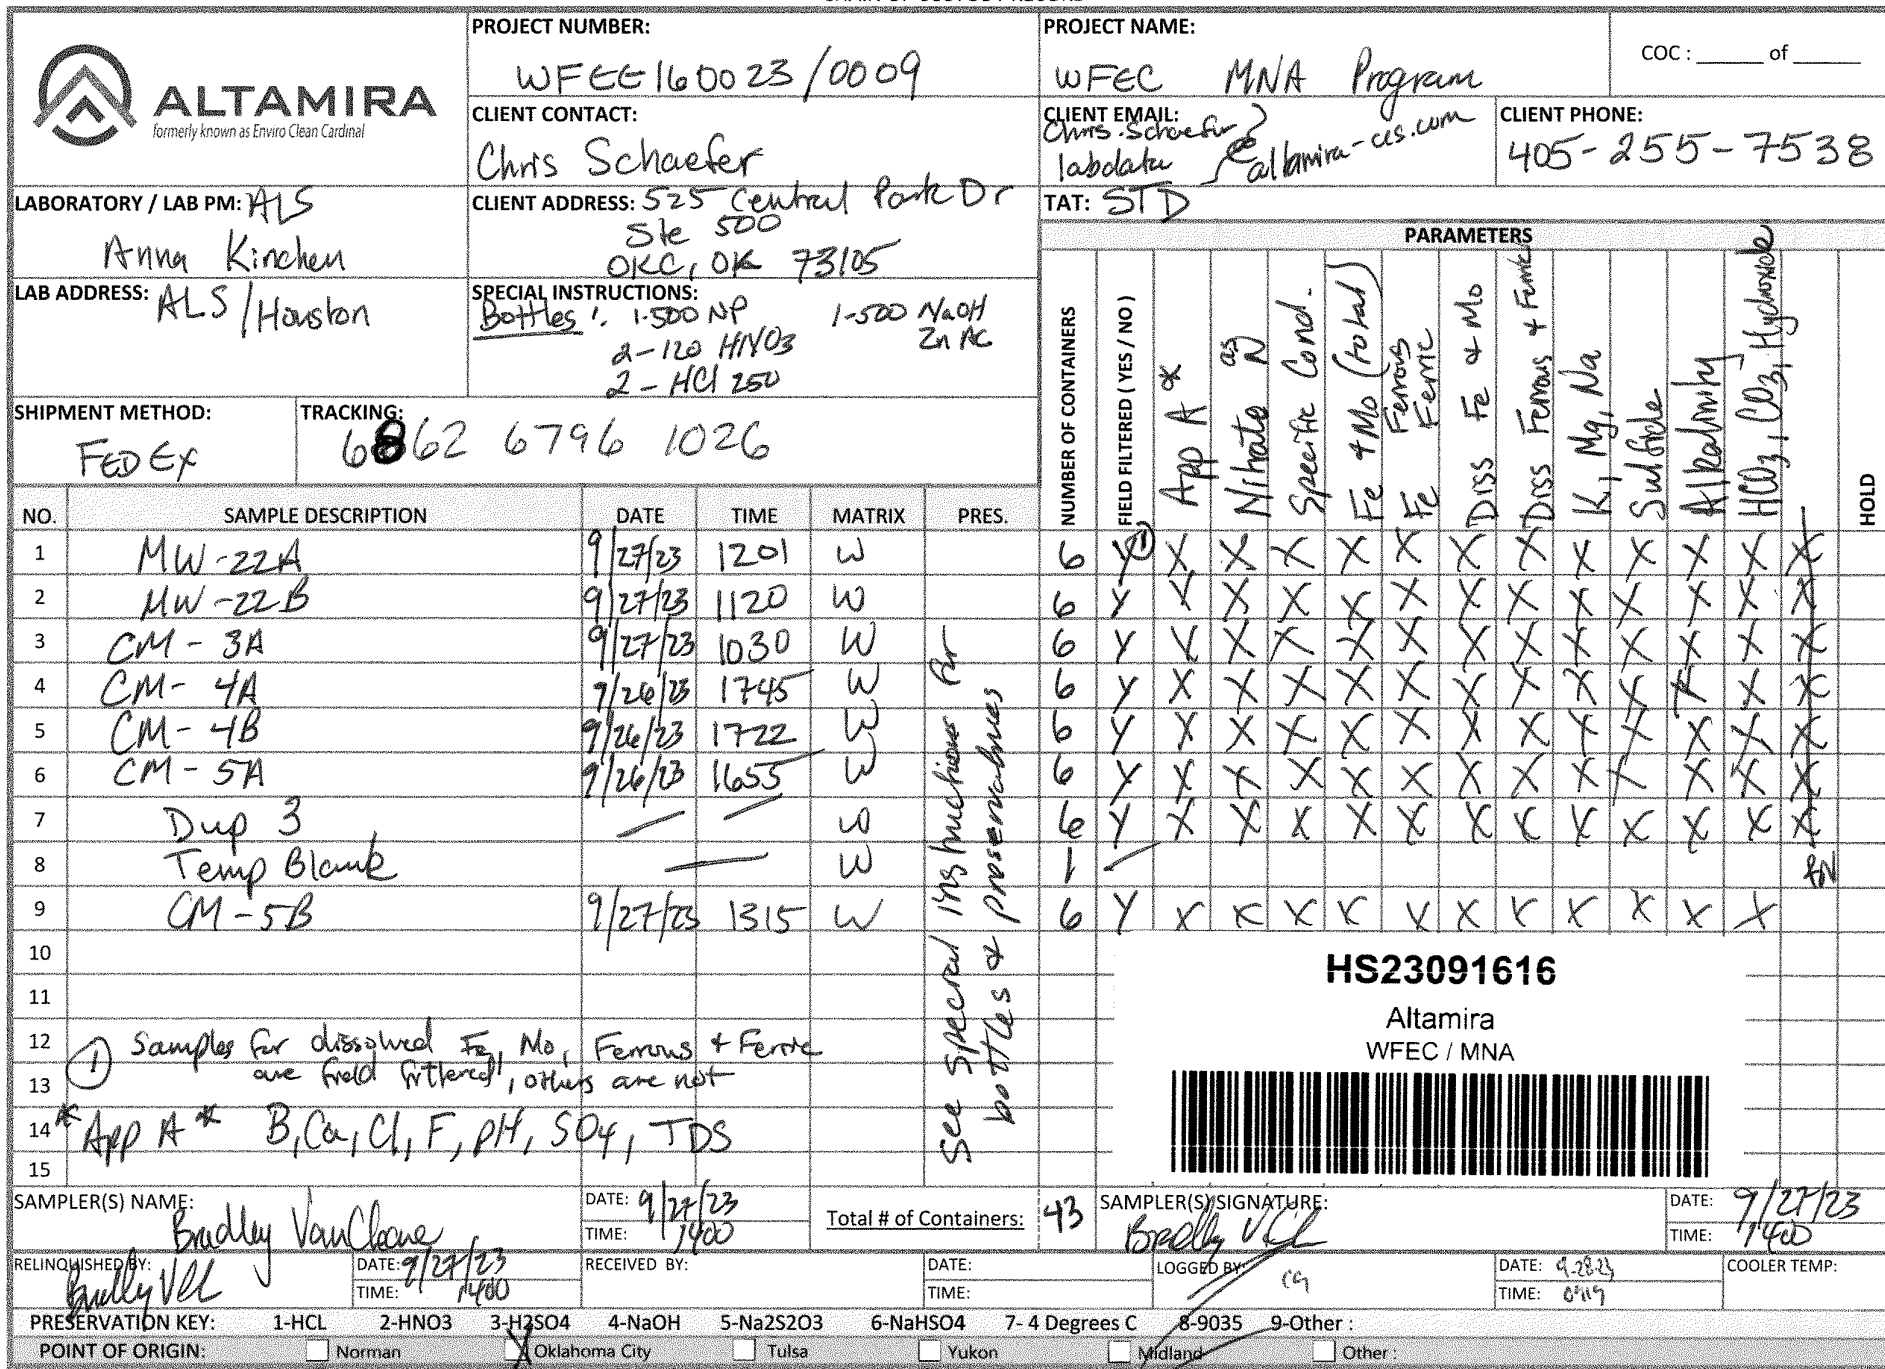 ALTAMIRA
formerly known as Enviro Clean Cardinal
PROJECT NUMBER:
WFEE160023/0009
PROJECT NAME:
WFEC MNA Program
COC : ______ of ______
CLIENT CONTACT:
Chris Schaefer
CLIENT EMAIL:
Chris.Schaefer
labdata
@altamira-ces.com
CLIENT PHONE:
405-255-7538
LABORATORY / LAB PM: ALS
Anna Kinchen
CLIENT ADDRESS: 525 Central Park Dr
Ste 500
OKC, OK 73105
TAT: STD
PARAMETERS
LAB ADDRESS: ALS/Houston
SPECIAL INSTRUCTIONS:
Bottles: 1-500 NP 1-500 NaOH
2-120 HNO3 Zn Ac
2-HCl 250
SHIPMENT METHOD:
FEDEX
TRACKING:
6862 6796 1026
NUMBER OF CONTAINERS
FIELD FILTERED ( YES / NO )
App A *
Nitrate as N
Specific Cond.
Fe + Mo (total)
Fe Ferrous Ferric
Diss Fe & Mo
Diss Ferrous + Ferric
K, Mg, Na
Sulfide
Alkalinity
HCO3, CO3, Hydroxide
HOLD
NO. SAMPLE DESCRIPTION DATE TIME MATRIX PRES.
1 MW-22A 9/27/23 1201 W 6 Y ① X X X X X X X X X X X X
2 MW-22B 9/27/23 1120 W 6 Y X X X X X X X X X X X X
3 CM-3A 9/27/23 1030 W 6 Y X X X X X X X X X X X X
4 CM-4A 9/26/23 1745 W 6 Y X X X X X X X X X X X X
5 CM-4B 9/26/23 1722 W 6 Y X X X X X X X X X X X X
6 CM-5A 9/26/23 1655 W 6 Y X X X X X X X X X X X X
7 Dup 3 — — W 6 Y X X X X X X X X X X X X
8 Temp Blank — W 1 —
9 CM-5B 9/27/23 1315 W 6 Y X X X X X X X X X X X
See special instructions for
bottles & preservatives
10
11
12 ① Samples for dissolved Fe, Mo, Ferrous + Ferric
13 are field filtered, others are not
14 *App A* B, Ca, Cl, F, pH, SO4, TDS
15
HS23091616
Altamira
WFEC / MNA
SAMPLER(S) NAME:
Bradley VanCleave
DATE: 9/27/23
TIME: 1400
Total # of Containers: 43
SAMPLER(S) SIGNATURE:
DATE: 9/27/23
TIME: 1400
RELINQUISHED BY:
DATE: 9/27/23
TIME: 1400
RECEIVED BY:
DATE:
TIME:
LOGGED BY:
DATE: 9-28-23
TIME: 0919
COOLER TEMP:
PRESERVATION KEY: 1-HCL 2-HNO3 3-H2SO4 4-NaOH 5-Na2S2O3 6-NaHSO4 7- 4 Degrees C 8-9035 9-Other :
POINT OF ORIGIN: Norman X Oklahoma City Tulsa Yukon Midland Other :